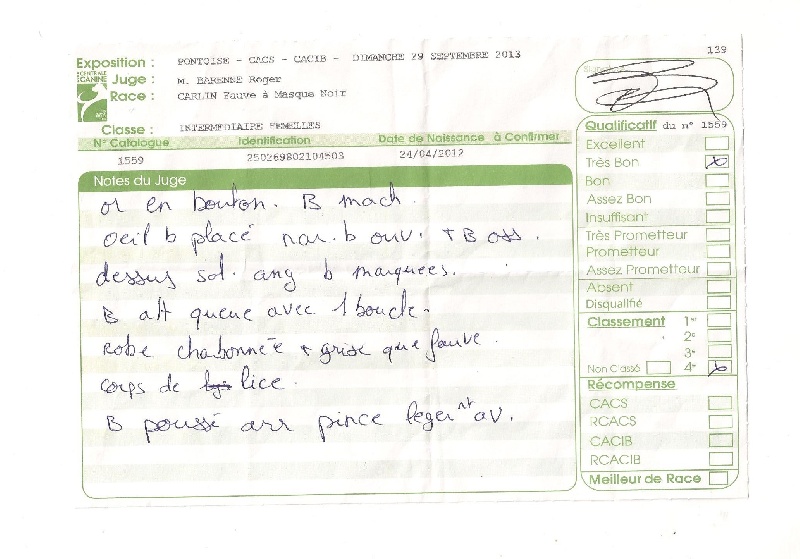 139
Exposition : PONTOISE - CACS - CACIB - DIMANCHE 29 SEPTEMBRE 2013
CENTRALE CANINE
Juge : M. BARENSE Roger
Race : CARLIN Fauve à Masque Noir
Classe : INTERMEDIAIRE FEMELLES
N° Catalogue Identification Date de Naissance à Confirmer
1559 250269802104503 24/04/2012
Notes du Juge
or en bouton. B mach.
oeil b placé nar. b ouv. + B oss.
dessus sol. ang b marquées.
B att queue avec 1 boucle.
Robe charbonnée + grise que fauve.
corps de lice.
B poussé arr pince leger nt av.
Qualificatif du n° 1559
Excellent
Très Bon X
Bon
Assez Bon
Insuffisant
Très Prometteur
Prometteur
Assez Prometteur
Absent
Disqualifié
Classement 1er
2e
3e
Non Classé 4e X
Récompense
CACS
RCACS
CACIB
RCACIB
Meilleur de Race